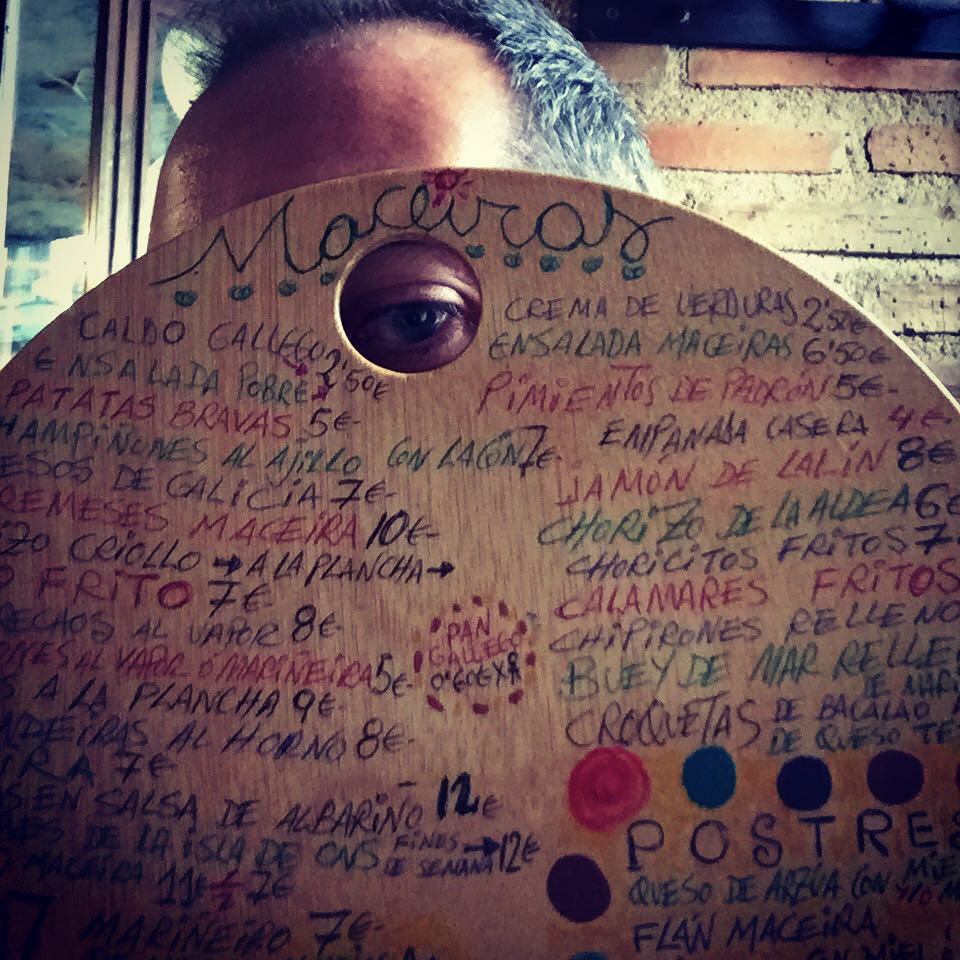 Maceiras
CALDO GALLEGO 2'50€
ENSALADA POBRE
PATATAS BRAVAS 5€
HAMPIÑONES AL AJILLO CON LACÓN 7€
ESOS DE GALICIA 7€
REMESES MACEIRA 10€
IZO CRIOLLO → A LA PLANCHA →
O FRITO 7€
RECHOS AL VAPOR 8€
AL VAPOR O MARIÑEIRA 5€
S A LA PLANCHA 9€
LDEIRAS AL HORNO 8€
IRA 7€
AS EN SALSA DE ALBARIÑO 12€
DE LA ISLA DE ONS FINES DE SEMANA → 12€
O MACEIRA 11€ ½ 7€
MARIÑEIRO 7€
PAN
GALLEGO
0'60€ X
CREMA DE VERDURAS 2'50€
ENSALADA MACEIRAS 6'50€
PIMIENTOS DE PADRÓN 5€
EMPANADA CASERA 4€
JAMÓN DE LALÍN 8€
CHORIZO DE LA ALDEA 6€
CHORICITOS FRITOS 7
CALAMARES FRITOS
CHIPIRONES RELLENO
BUEY DE MAR RELLE
DE MARI
CROQUETAS DE BACALAO
DE QUESO TE
POSTRES
QUESO DE ARZÚA CON MIE
FLAN MACEIRA